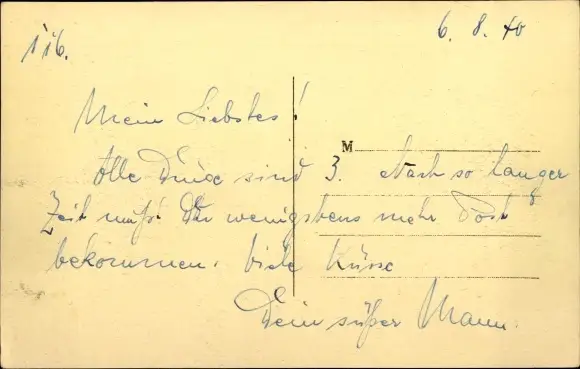 116.
6. 8. 40
Mein Liebstes!
M
Alle Dinge sind 3. Nach so langer
Zeit mußt Du wenigstens mehr Post
bekommen. Viele Küsse
Dein süßer Mann.